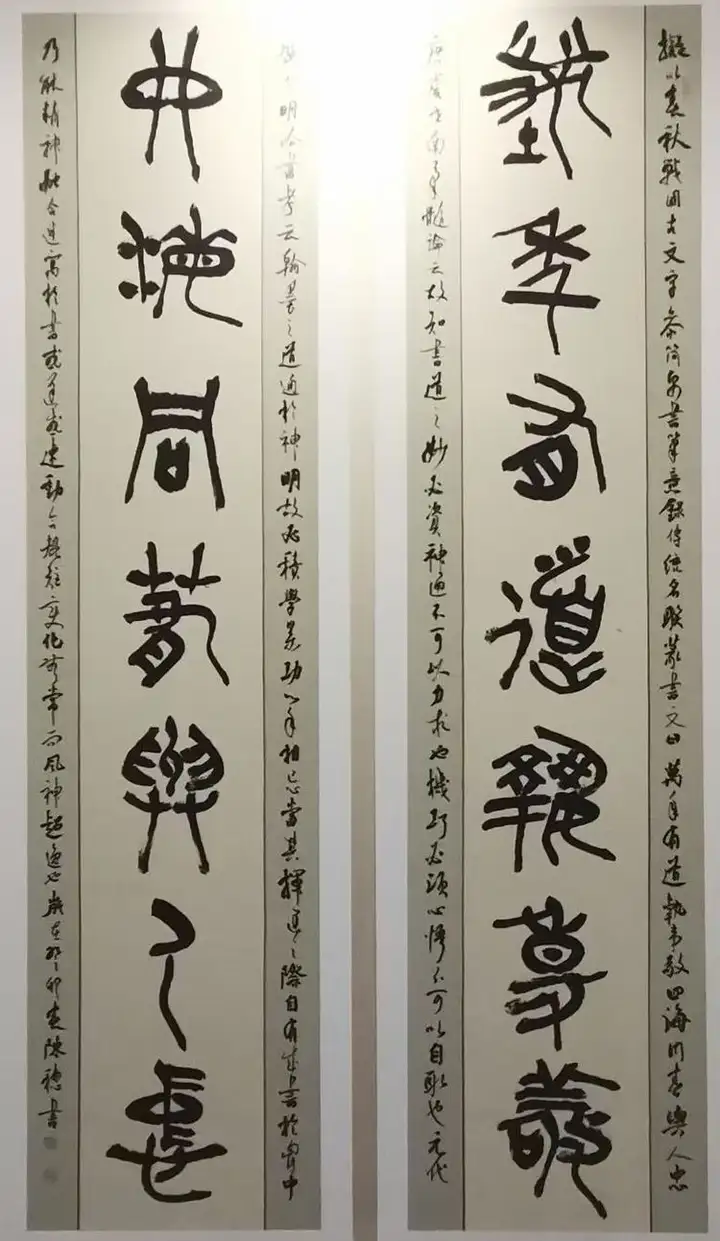 擬以春秋戰國古文字參簡帛書筆意錄傳統名聯篆書文曰萬年有道執事敬四海同春與人忠
萬年有道執事敬
虞世南筆髓論云故知書道之妙必資神遇不可以力求也機巧必須心悟不可以目取也元代
明法書考云翰墨之道通於神明故必積學累功心手相忘當其揮運之際自有成書於胷中
四海同春與人忠
乃能精神融會寓於書或遲或速動合規矩變化無常而風神超逸也歲在癸卯春陳書